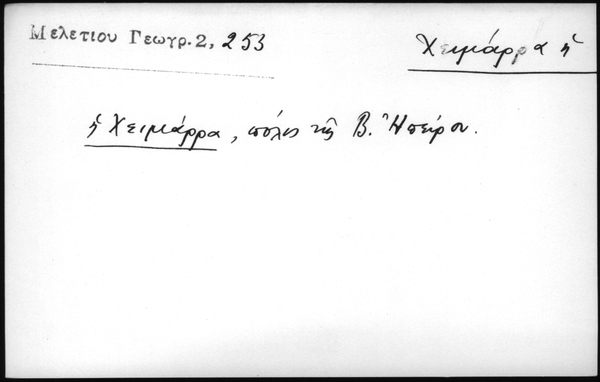 Μελετίου Γεωγρ. 2, 253
Χειμάρρα ἡ
ἡ Χειμάρρα, πόλις τῆς Β. Ἠπείρου.